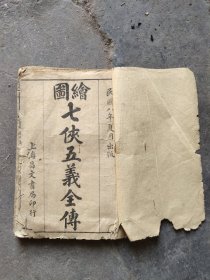 民國八年夏月出版
繪圖
七俠五義全傳
上海昌文書局印行